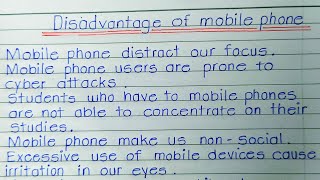 Disadvantage of mobile phone
Mobile phone distract our focus.
Mobile phone users are prone to
cyber attacks.
Students who have to mobile phones
are not able to concentrate on their
studies.
Mobile phone make us non-social.
Excessive use of mobile devices cause
irritation in our eyes.